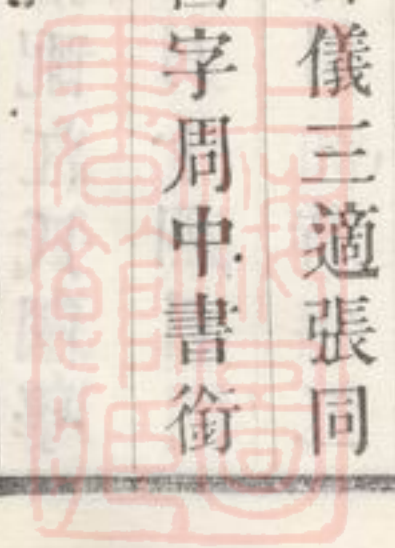 儀三適張同
字周中書銜